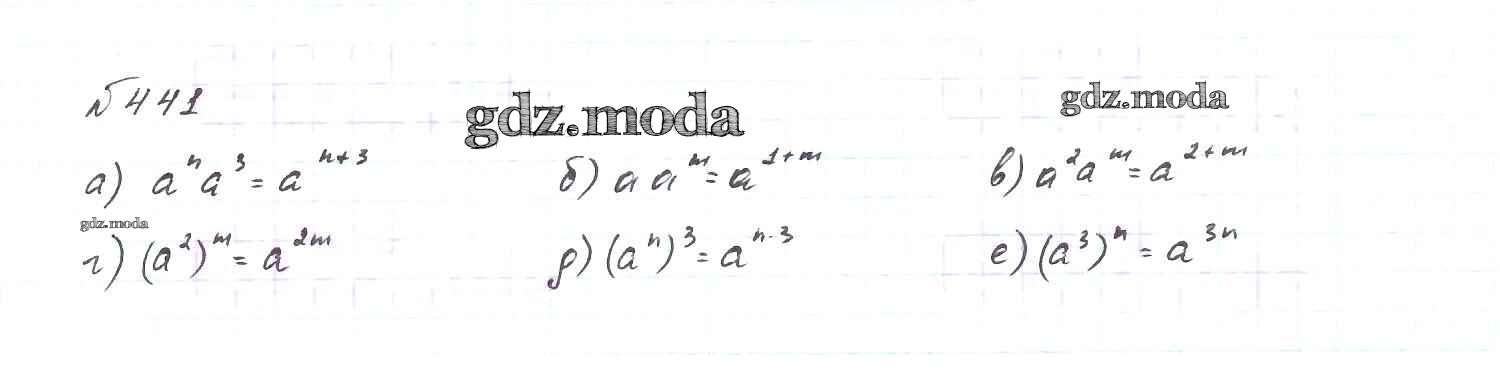 № 441
gdz.moda
gdz.moda
а) aⁿa³ = aⁿ⁺³ б) a aᵐ = a¹⁺ᵐ в) a²aᵐ = a²⁺ᵐ
gdz.moda
г) (a²)ᵐ = a²ᵐ д) (aⁿ)³ = aⁿ·³ е) (a³)ⁿ = a³ⁿ